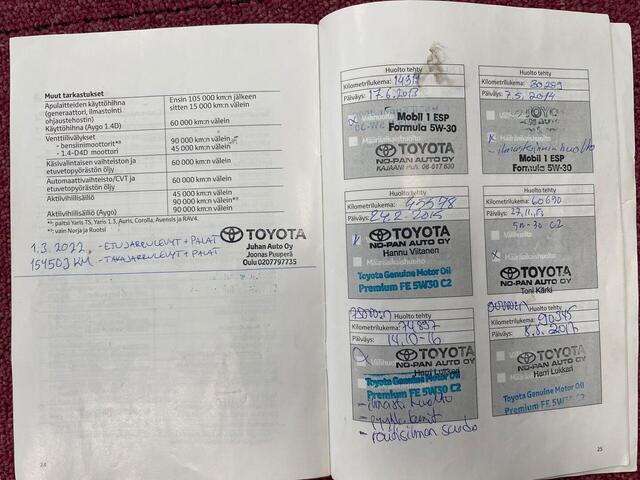 Muut tarkastukset
Apulaitteiden käyttöhihna
(generaattori, ilmastointi
ohjaustehostin)
Käyttöhihna (Aygo 1.4D)
Ensin 105 000 km:n jälkeen
sitten 15 000 km:n välein
60 000 km:n välein
Venttiilivälykset
- bensiinimoottorit*⁾
- 1.4-D4D moottori
90 000 km:n välein
45 000 km:n välein
Käsivalintaisen vaihteiston ja
etuvetopyörästön öljy
60 000 km:n välein
Automaattivaihteisto/CVT ja
etuvetopyörästön öljy
60 000 km:n välein
Aktiivihiilisäiliö
45 000 km:n välein
90 000 km:n välein
Aktiivihiilisäiliö (Aygo)
90 000 km:n välein
*⁾: paitsi Yaris TS, Yaris 1.3, Auris, Corolla, Avensis ja RAV4.
: vain Norja ja Ruotsi
1.3.2022 - ETUJARRULEVYT + PALAT
154503 KM - TAKAJARRULEVYT + PALAT
TOYOTA
Juhan Auto Oy
Joonas Puuperä
Oulu 0207797735
24
Huolto tehty
Kilometrilukema:
Päiväys: 17.6.2013
Mobil 1 ESP
Formula 5W-30
TOYOTA
NO-PAN AUTO OY
KAJAANI Puh. 08-617 830
Huolto tehty
Kilometrilukema: 30289
Päiväys: 7.5.2014
TOYOTA
Mobil 1 ESP
Formula 5W-30
Huolto tehty
Kilometrilukema: 45578
Päiväys: 24.2.2015
TOYOTA
NO-PAN AUTO OY
Hannu Viitanen
Toyota Genuine Motor Oil
Premium FE 5W30 C2
Huolto tehty
Kilometrilukema: 60690
Päiväys:
5W-30 C2
TOYOTA
NO-PAN AUTO OY
Toni Kärki
Huolto tehty
Kilometrilukema: 74897
Päiväys: 14.10-16
TOYOTA
NO-PAN AUTO OY
Harri Lukkari
Toyota Genuine Motor Oil
Premium FE 5W30 C2
Huolto tehty
Kilometrilukema: 90345
Päiväys: 8.8.2017
TOYOTA
NO-PAN AUTO OY
Harri Lukkari
Toyota Genuine Motor Oil
Premium FE 5W30 C2
25